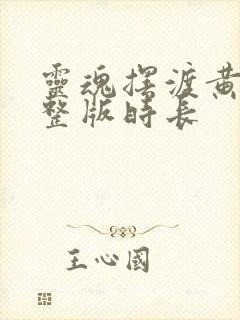 靈魂擺渡黄
整版時長
王心國